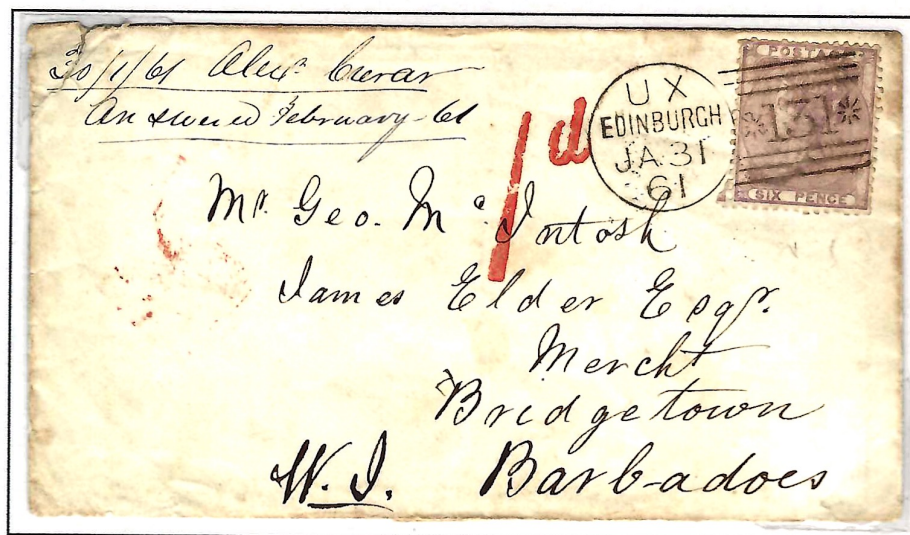 30/1/61 Alexr. Curar
Answered February 61
1d
UX
EDINBURGH
JA 31
61
POSTAGE
131
SIX PENCE
Mr. Geo. Mc Intosh
James Elder Esqr.
Mercht
Bridgetown
W.I. Barbadoes